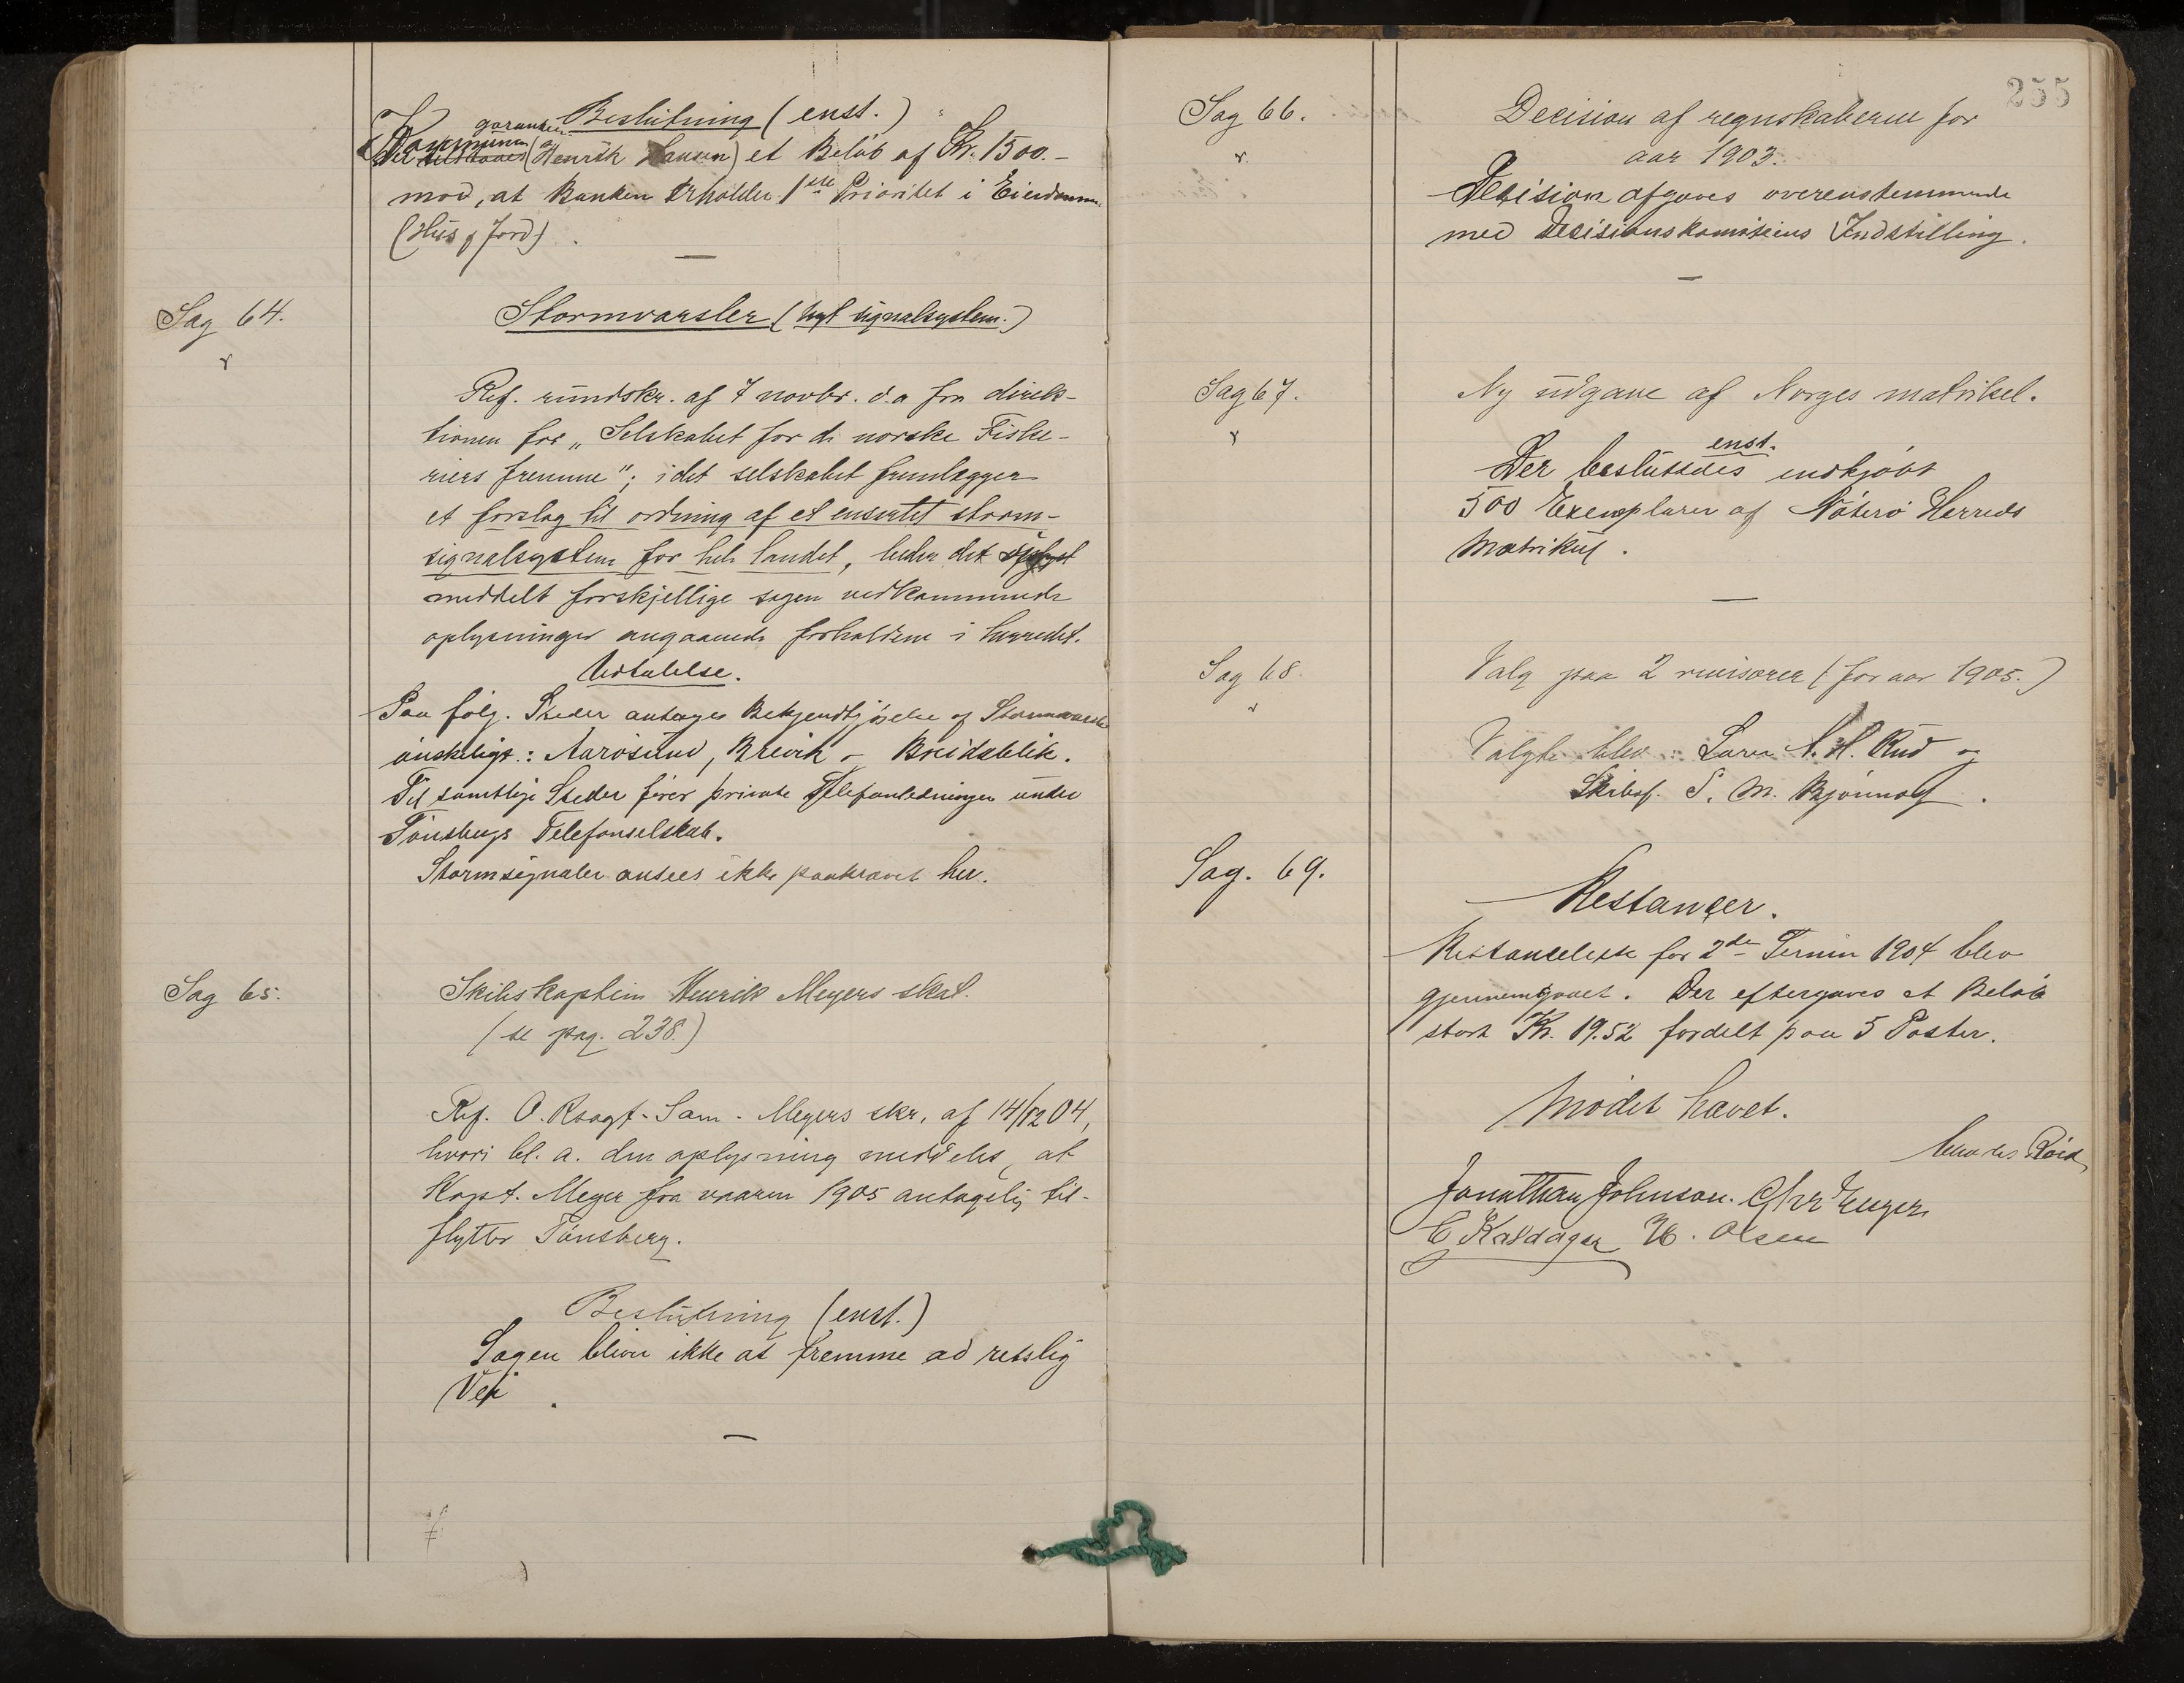 Beslutning (enst.)
Kommunen garanterer
(Henrik Hansen) et Beløb af Kr. 1500.-
mod, at Banken erholder 1ste Prioritet i Eiendommen
(Hus & Jord).
Sag 64.
Stormvarsler (nyt signalsystem.)
Ref. rundskr. af 7 novbr. d.a fra direk-
tionen for „Selskabet for de norske Fiske-
riers fremme"; idet selskabet fremlægger
et forslag til ordning af et ensartet storm-
signalsystem for hele landet, beder det
meddelt forskjellige sagen vedkommende
oplysninger angaaende forholdene i herredet.
Udtalelse.
Paa følg. Steder antages Bekjendtgjørelse af Stormvarsler
ønskeligt: Aarøsund, Brevik - Breidablik.
Til samtlige Steder fører private Telefonledninger under
Tønsbergs Telefonselskab.
Stormsignaler ansees ikke paakrævet her.
Sag 65.
Skibskaptein Henrik Meyers skat.
(se pag. 238.)
Ref. O. Rsagf. Sam. Meyers skr. af 14/12 04,
hvori bl. a. den oplysning meddeles, at
Kapt. Meyer fra vaaren 1905 antagelig til-
flytter Tønsberg.
Beslutning (enst.)
Sagen bliver ikke at fremme ad retslig
Vei.
255
Sag 66.
Decision af regnskaberne for
aar 1903.
Decision afgaves overenstemmende
med Decisionskomiteens Indstilling.
Sag 67.
Ny udgave af Norges matrikel.
enst.
Der besluttedes indkjøbt
500 Exemplarer af Nøterø Herreds
Matrikul.
Sag 68.
Valg paa 2 revisorer (for aar 1905.)
Valgte blev: Lærer A. H. Rud og
Skibsf. S. M. Bjønnes.
Sag. 69.
Restancer.
Restanceliste for 2den Termin 1904 blev
gjennemgaaet. Der eftergaves et Beløb
stort Kr. 19.52 fordelt paa 5 Poster.
Mødet hævet.
Jonathan Johnson. Chr Unger
C Kaldager H. Olsen